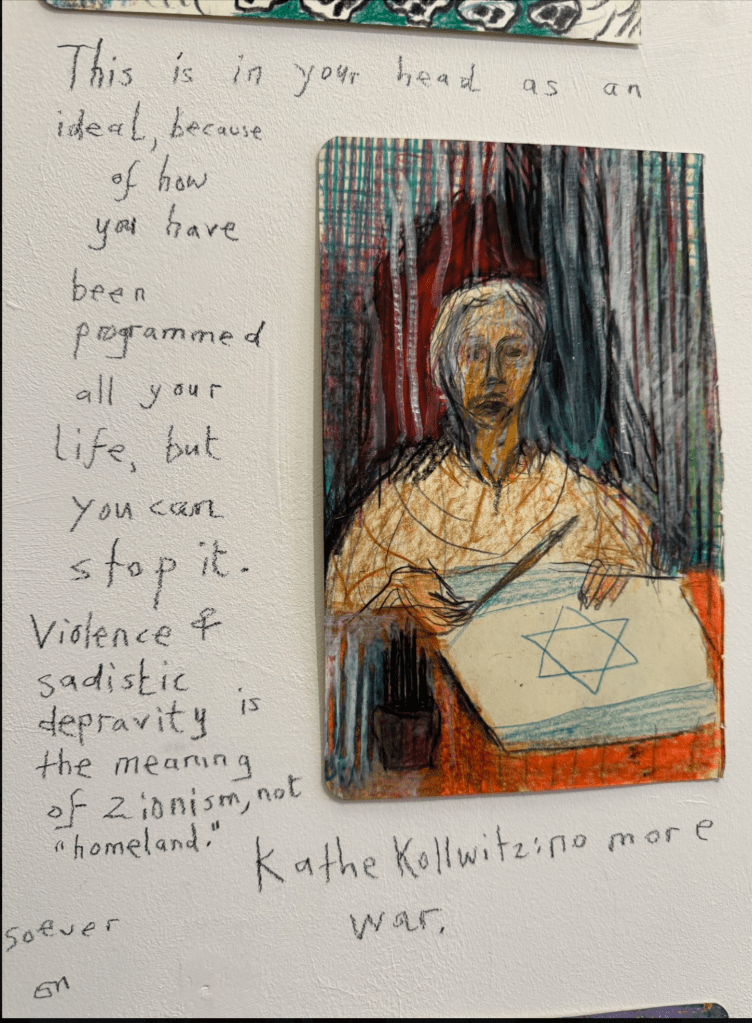 This is in your head as an
ideal, because
of how
you have
been
programmed
all your
life, but
you can
stop it.
Violence &
sadistic
depravity is
the meaning
of Zionism, not
"homeland."
Kathe Kollwitz: no more
war.